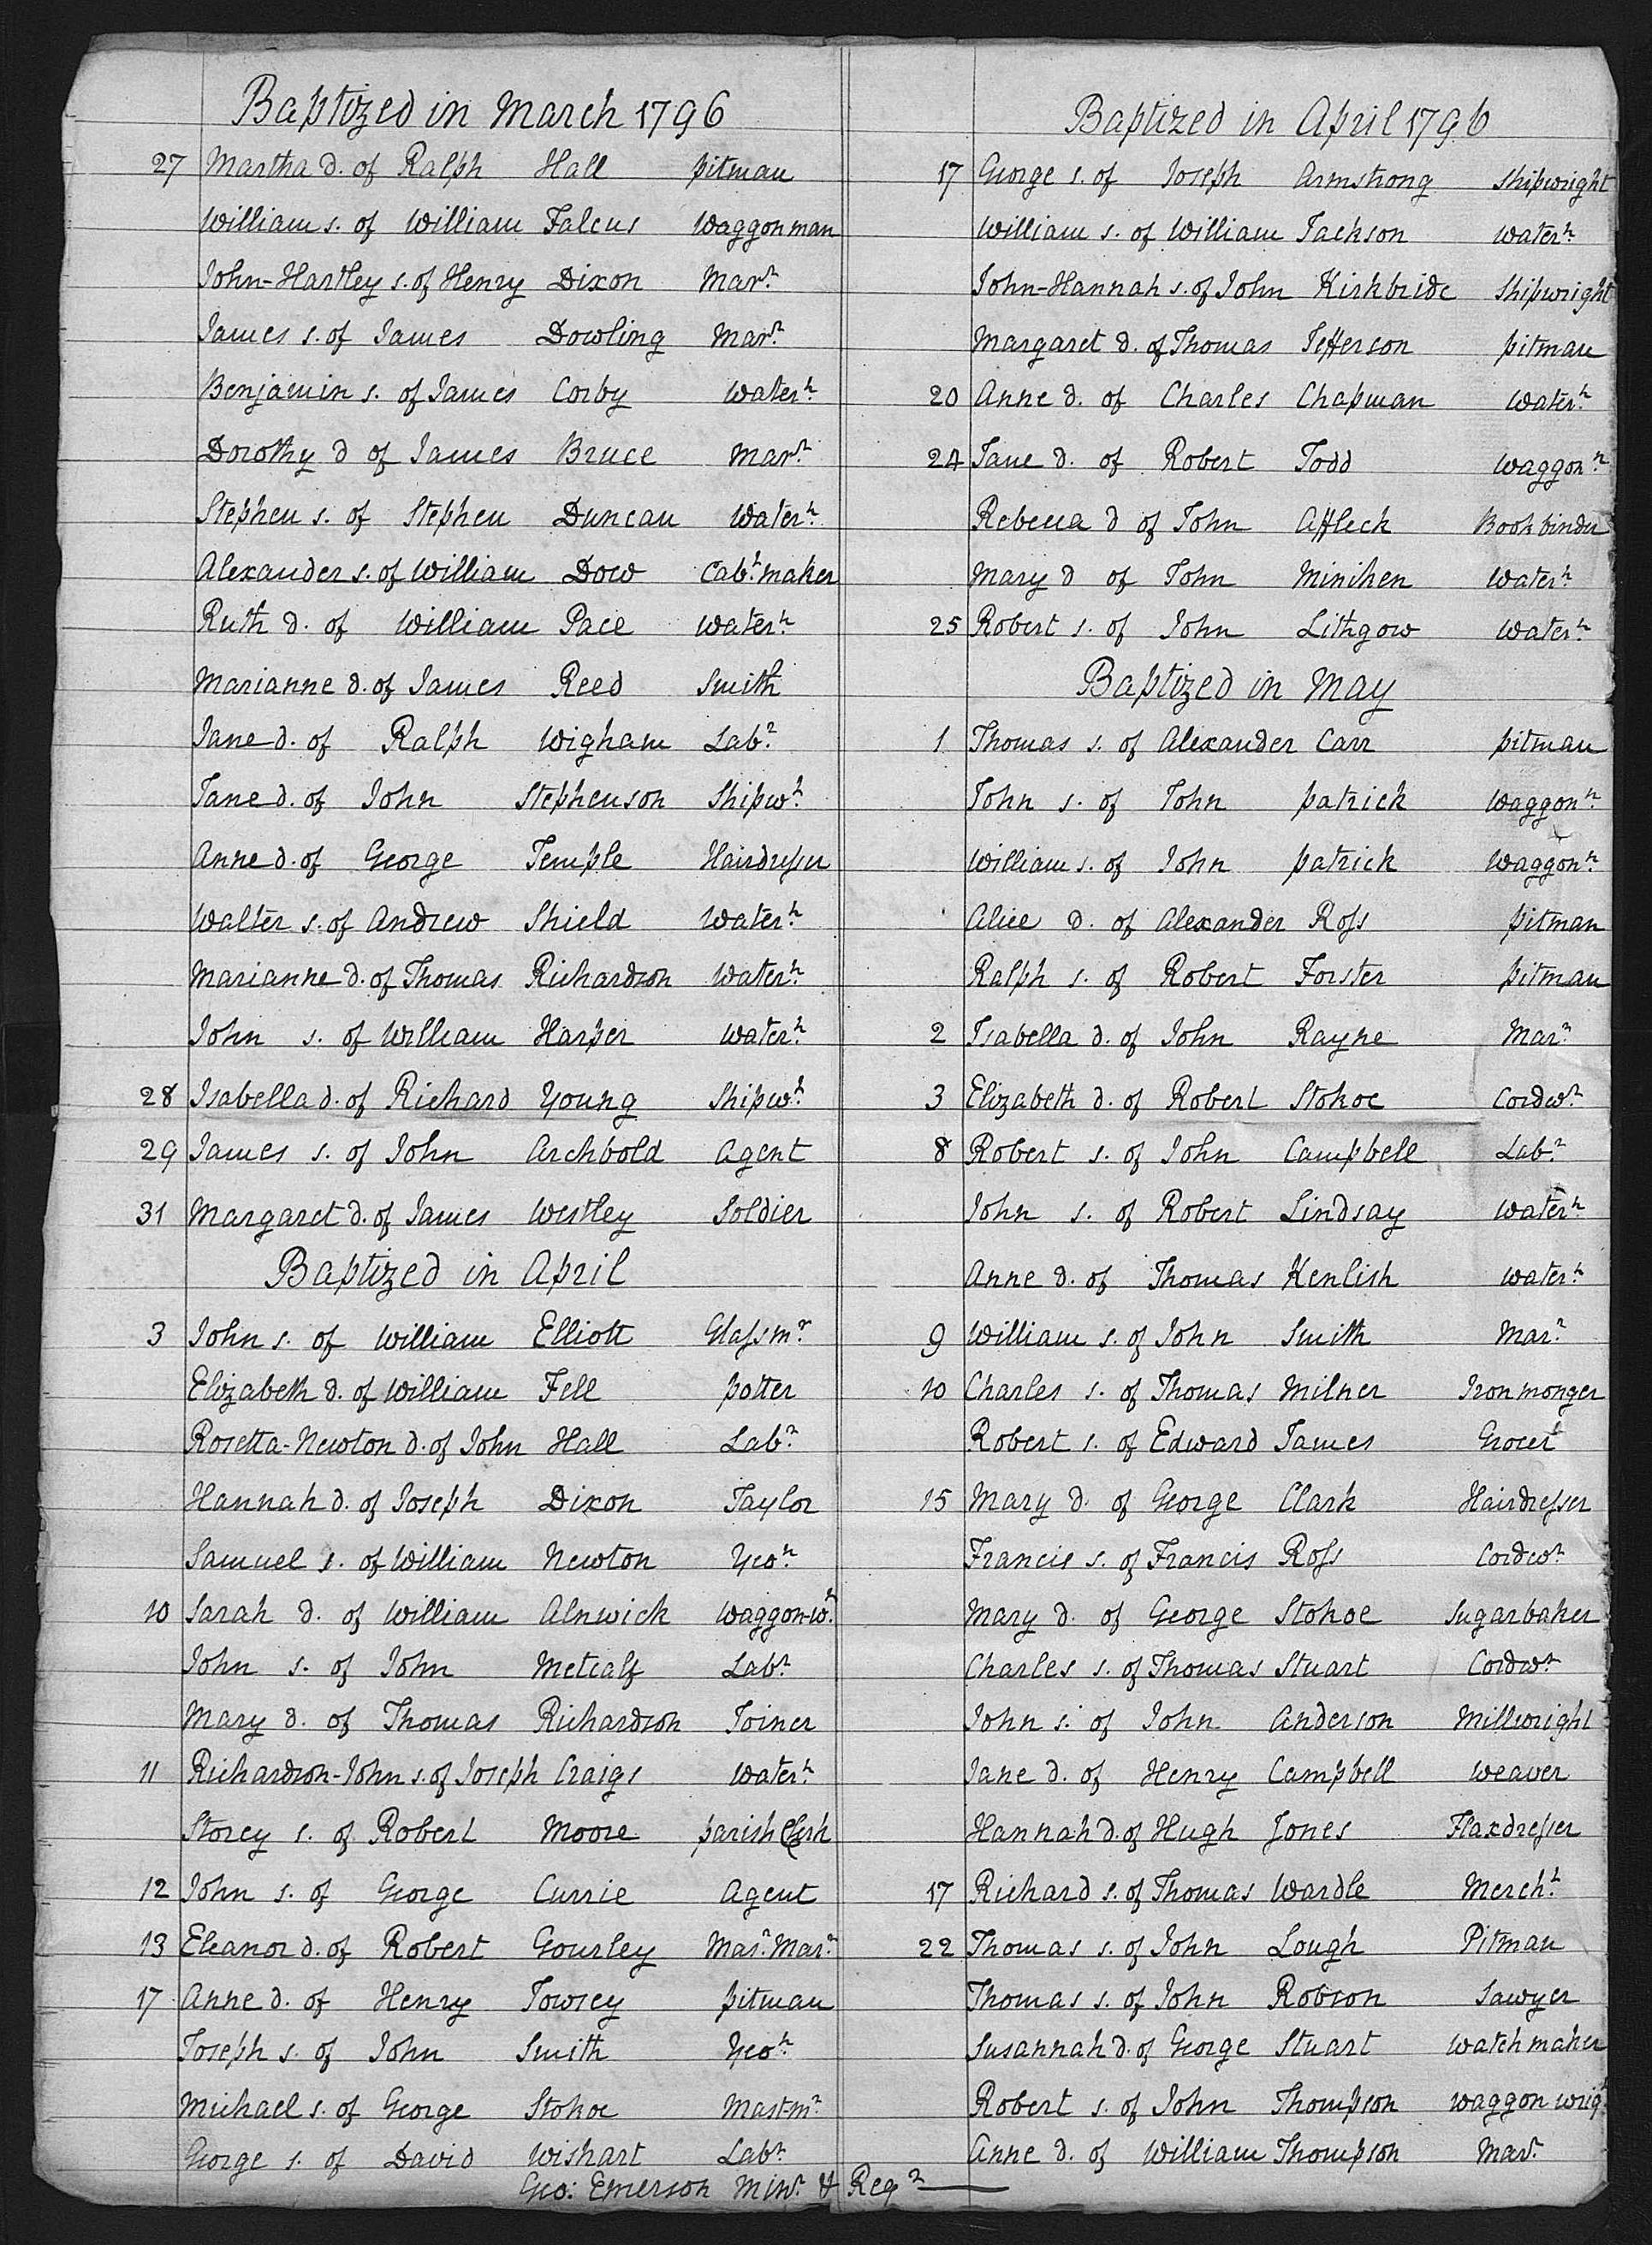 Baptized in March 1796
27 Martha d. of Ralph Hall pitman
William s. of William Falcus Waggonman
John-Hartley s. of Henry Dixon Marr.
James s. of James Dowling Marr.
Benjamin s. of James Corby Watern.
Dorothy d of James Bruce Marr.
Stephen s. of Stephen Duncan Watern.
Alexander s. of William Dow Cabt. maker
Ruth d. of William Pace Watern.
Marianne d. of James Reed Smith
Jane d. of Ralph Wigham Labr.
Jane d. of John Stephenson Shipwt.
Anne d. of George Temple Hairdresser
Walter s. of Andrew Shield Watern.
Marianne d. of Thomas Richardson Watern.
John s. of William Harper Watern.
28 Isabella d. of Richard Young Shipwt.
29 James s. of John Archbold Agent
31 Margaret d. of James Westley Soldier
Baptized in April
3 John s. of William Elliott Glassmr.
Elizabeth d. of William Fell potter
Rosetta-Newton d. of John Hall Labr.
Hannah d. of Joseph Dixon Taylor
Samuel s. of William Newton Yeon.
10 Sarah d. of William Alnwick Waggon-wt.
John s. of John Metcalf Labr.
Mary d. of Thomas Richardson Joiner
11 Richardson-John s. of Joseph Craigs Watern.
Storey s. of Robert Moore parish Clerk
12 John s. of George Currie Agent
13 Eleanor d. of Robert Gourley Masr. Marr.
17 Anne d. of Henry Towsey pitman
Joseph s. of John Smith Yeon.
Michael s. of George Stokoe Mast-mr.
George s. of David Wishart Labr.
Baptized in April 1796
17 George s. of Joseph Armstrong Shipwright
William s. of William Jackson Watern.
John-Hannah s. of John Kirkbride Shipwright
Margaret d. of Thomas Jefferson pitman
20 Anne d. of Charles Chapman Watern.
24 Jane d. of Robert Todd Waggonn.
Rebecca d of John Affleck Bookbinder
Mary d of John Minihen Watern.
25 Robert s. of John Lithgow Watern.
Baptized in May
1 Thomas s. of Alexander Carr pitman
John s. of John patrick Waggonn.
William s. of John patrick Waggonn.
Alice d. of Alexander Ross pitman
Ralph s. of Robert Forster pitman
2 Isabella d. of John Rayne Marr.
3 Elizabeth d. of Robert Stokoe Cordwr.
8 Robert s. of John Campbell Labr.
John s. of Robert Lindsay Watern.
Anne d. of Thomas Kenlish Watern.
9 William s. of John Smith Marr.
10 Charles s. of Thomas Milner Ironmonger
Robert s. of Edward James Grocer
15 Mary d. of George Clark Hairdresser
Francis s. of Francis Ross Cordwr.
Mary d. of George Stokoe Sugarbaker
Charles s. of Thomas Stuart Cordwr.
John s. of John Anderson Millwright
Jane d. of Henry Campbell Weaver
Hannah d. of Hugh Jones Flaxdresser
17 Richard s. of Thomas Wardle Mercht.
22 Thomas s. of John Lough Pitman
Thomas s. of John Robson Sawyer
Susannah d. of George Stuart Watchmaker
Robert s. of John Thompson Waggon wrigt.
Anne d. of William Thompson Marr.
Geo: Emerson Minr. & Regr.